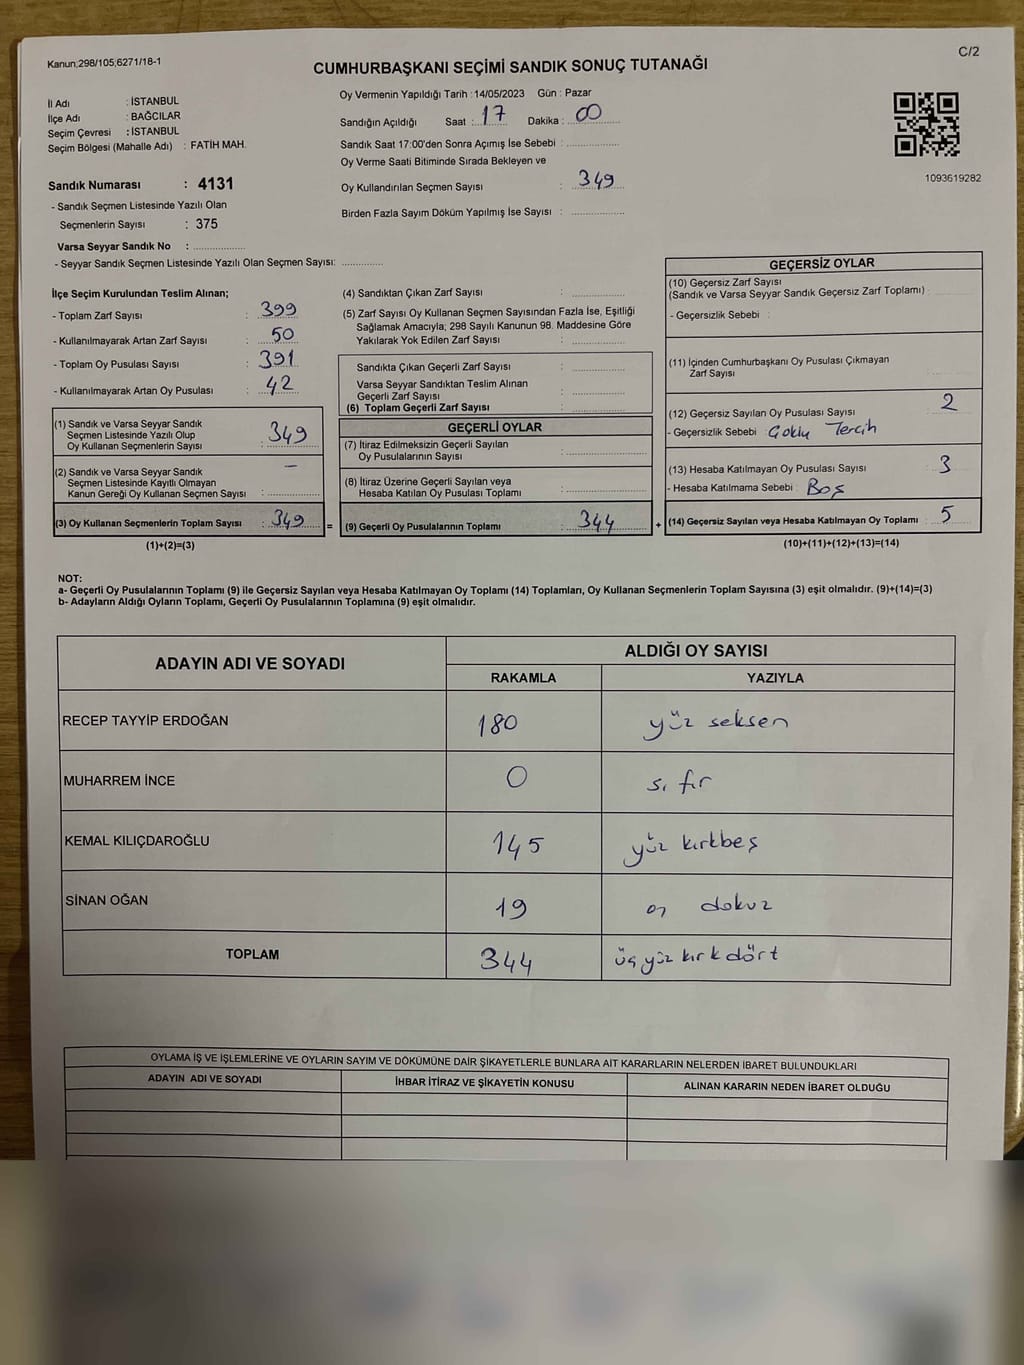 Kanun;298/105;6271/18-1
C/2
CUMHURBAŞKANI SEÇİMİ SANDIK SONUÇ TUTANAĞI
İl Adı : İSTANBUL
İlçe Adı : BAĞCILAR
Seçim Çevresi : İSTANBUL
Seçim Bölgesi (Mahalle Adı) : FATİH MAH.
Sandık Numarası : 4131
- Sandık Seçmen Listesinde Yazılı Olan
Seçmenlerin Sayısı : 375
Varsa Seyyar Sandık No : ....................
- Seyyar Sandık Seçmen Listesinde Yazılı Olan Seçmen Sayısı: ................
Oy Vermenin Yapıldığı Tarih : 14/05/2023 Gün : Pazar
Sandığın Açıldığı Saat : 17 Dakika : 00
Sandık Saat 17:00'den Sonra Açımış İse Sebebi : ....................
Oy Verme Saati Bitiminde Sırada Bekleyen ve
Oy Kullandırılan Seçmen Sayısı : 349
Birden Fazla Sayım Döküm Yapılmış İse Sayısı : ....................
1093619282
İlçe Seçim Kurulundan Teslim Alınan;
- Toplam Zarf Sayısı : 399
- Kullanılmayarak Artan Zarf Sayısı : 50
- Toplam Oy Pusulası Sayısı : 391
- Kullanılmayarak Artan Oy Pusulası : 42
(1) Sandık ve Varsa Seyyar Sandık
Seçmen Listesinde Yazılı Olup
Oy Kullanan Seçmenlerin Sayısı : 349
(2) Sandık ve Varsa Seyyar Sandık
Seçmen Listesinde Kayıtlı Olmayan
Kanun Gereği Oy Kullanan Seçmen Sayısı : —
(3) Oy Kullanan Seçmenlerin Toplam Sayısı : 349 =
(1)+(2)=(3)
(4) Sandıktan Çıkan Zarf Sayısı : ....................
(5) Zarf Sayısı Oy Kullanan Seçmen Sayısından Fazla İse, Eşitliği
Sağlamak Amacıyla; 298 Sayılı Kanunun 98. Maddesine Göre
Yakılarak Yok Edilen Zarf Sayısı : ....................
Sandıkta Çıkan Geçerli Zarf Sayısı : ....................
Varsa Seyyar Sandıktan Teslim Alınan
Geçerli Zarf Sayısı : ....................
(6) Toplam Geçerli Zarf Sayısı : ....................
GEÇERLİ OYLAR
(7) İtiraz Edilmeksizin Geçerli Sayılan
Oy Pusulalarının Sayısı : ....................
(8) İtiraz Üzerine Geçerli Sayılan veya
Hesaba Katılan Oy Pusulası Toplamı : ....................
(9) Geçerli Oy Pusulalarının Toplamı : 344 +
GEÇERSİZ OYLAR
(10) Geçersiz Zarf Sayısı
(Sandık ve Varsa Seyyar Sandık Geçersiz Zarf Toplamı) :
- Geçersizlik Sebebi :
(11) İçinden Cumhurbaşkanı Oy Pusulası Çıkmayan
Zarf Sayısı :
(12) Geçersiz Sayılan Oy Pusulası Sayısı : 2
- Geçersizlik Sebebi : Çoklu Tercih
(13) Hesaba Katılmayan Oy Pusulası Sayısı : 3
- Hesaba Katılmama Sebebi : Boş
(14) Geçersiz Sayılan veya Hesaba Katılmayan Oy Toplamı : 5
(10)+(11)+(12)+(13)=(14)
NOT:
a- Geçerli Oy Pusulalarının Toplamı (9) ile Geçersiz Sayılan veya Hesaba Katılmayan Oy Toplamı (14) Toplamları, Oy Kullanan Seçmenlerin Toplam Sayısına (3) eşit olmalıdır. (9)+(14)=(3)
b- Adayların Aldığı Oyların Toplamı, Geçerli Oy Pusulalarının Toplamına (9) eşit olmalıdır.
ADAYIN ADI VE SOYADI ALDIĞI OY SAYISI
RAKAMLA YAZIYLA
RECEP TAYYİP ERDOĞAN 180 yüz seksen
MUHARREM İNCE 0 sıfır
KEMAL KILIÇDAROĞLU 145 yüz kırkbeş
SİNAN OĞAN 19 on dokuz
TOPLAM 344 üçyüz kırk dört
OYLAMA İŞ VE İŞLEMLERİNE VE OYLARIN SAYIM VE DÖKÜMÜNE DAİR ŞİKAYETLERLE BUNLARA AİT KARARLARIN NELERDEN İBARET BULUNDUKLARI
ADAYIN ADI VE SOYADI İHBAR İTİRAZ VE ŞİKAYETİN KONUSU ALINAN KARARIN NEDEN İBARET OLDUĞU